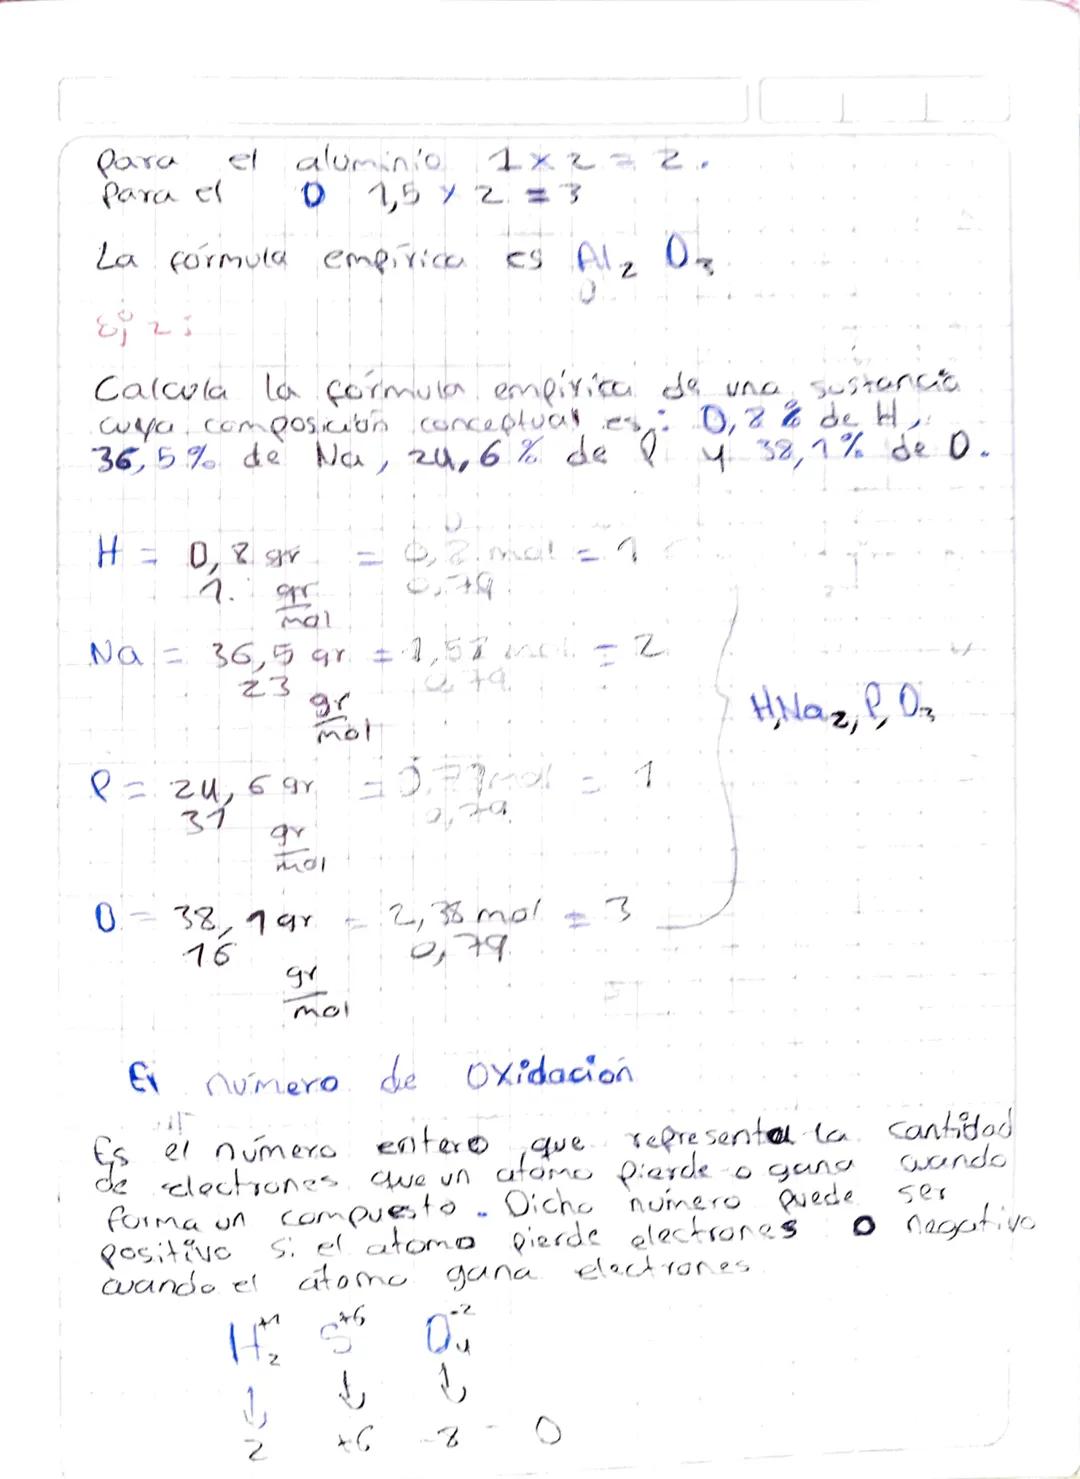 para el aluminio 1 x 2 = 2.
Para el O 1,5 x 2 = 3
La fórmula empírica es Al2 O3
Ej 2:
Calcula la fórmula empírica de una sustancia
cuya composición conceptual es: 0,8 % de H,
36,5% de Na, 24,6 % de P y 38,1% de O.
H = 0,8 gr = 0,8 mol = 1
1. gr 0,79
mol
Na = 36,5 gr = 1,58 mol = 2
23 gr 0,79
mol
H, Na2, P, O3
P = 24,6 gr = 0,79 mol = 1
31 gr 0,79
mol
O = 38,1 gr = 2,38 mol = 3
16 0,79
gr
mol
El número de oxidación
Es el número entero que representa la cantidad
de electrones que un atomo pierde o gana cuando
forma un compuesto. Dicho número puede ser
positivo si el atomo pierde electrones o negativo
cuando el átomo gana electrones
H2+1 S+6 O4-2
↓ ↓ ↓
2 +6 -8 = 0